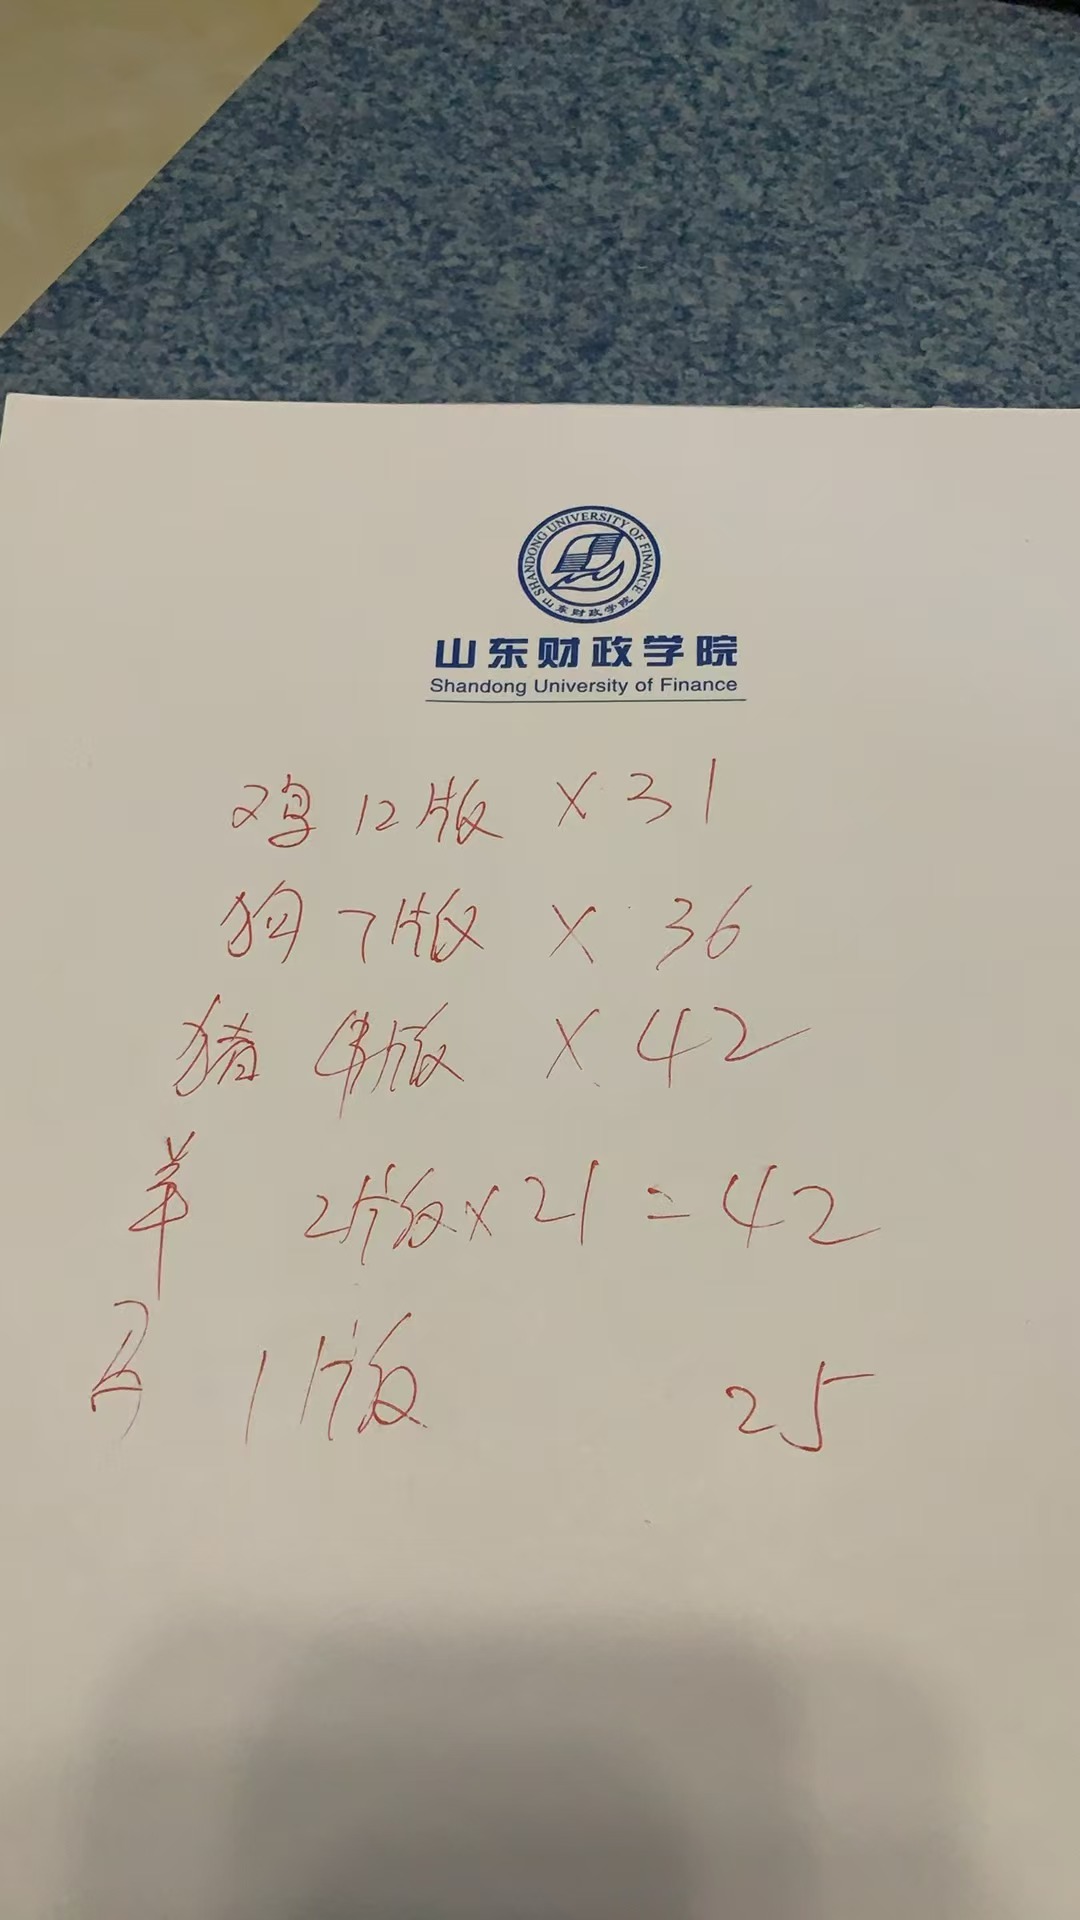 SHANDONG UNIVERSITY OF FINANCE
山东财政学院
山东财政学院
Shandong University of Finance
鸡 12版 × 31
狗 7版 × 36
猪 4版 × 42
羊 2版 × 21 = 42
马 1版 25